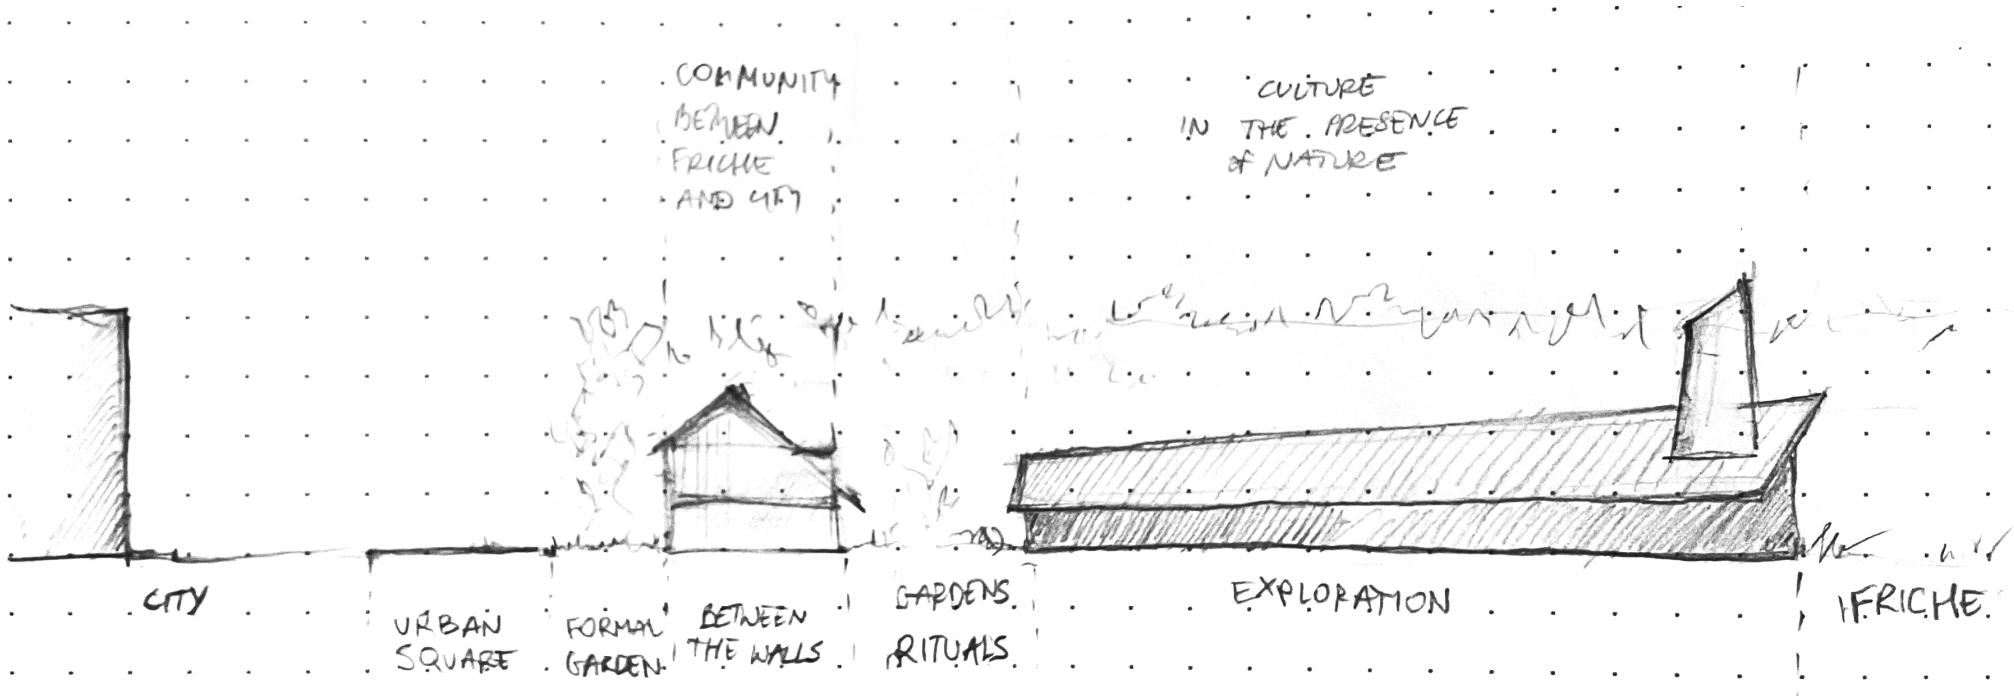 COMMUNITY
BETWEEN
FRICHE
AND CITY
CULTURE
IN THE PRESENCE
of NATURE
CITY
URBAN
SQUARE
FORMAL
GARDEN
BETWEEN
THE WALLS
GARDENS
RITUALS
EXPLORATION
FRICHE